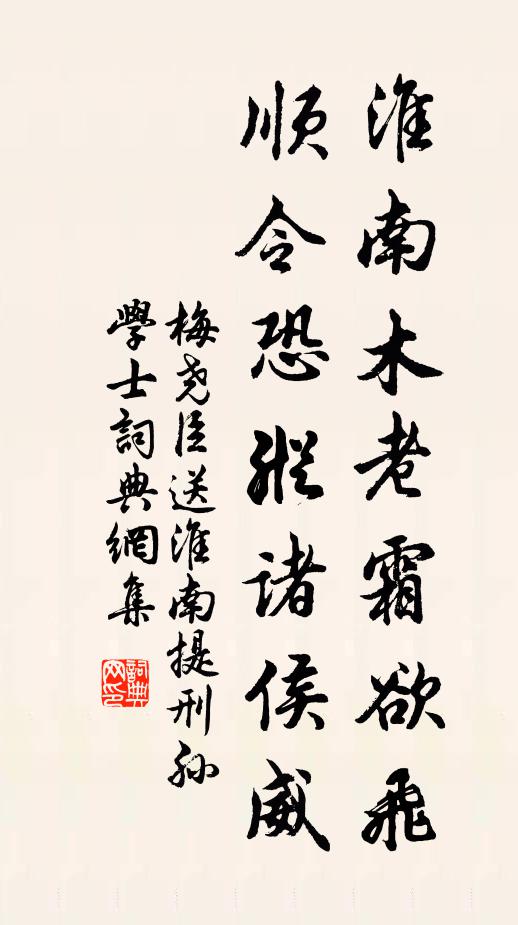 淮南木老霜欲飛
順令恐縱诸侯威
梅尧臣送淮南提刑孙
學士詞典網集
詞典
网印